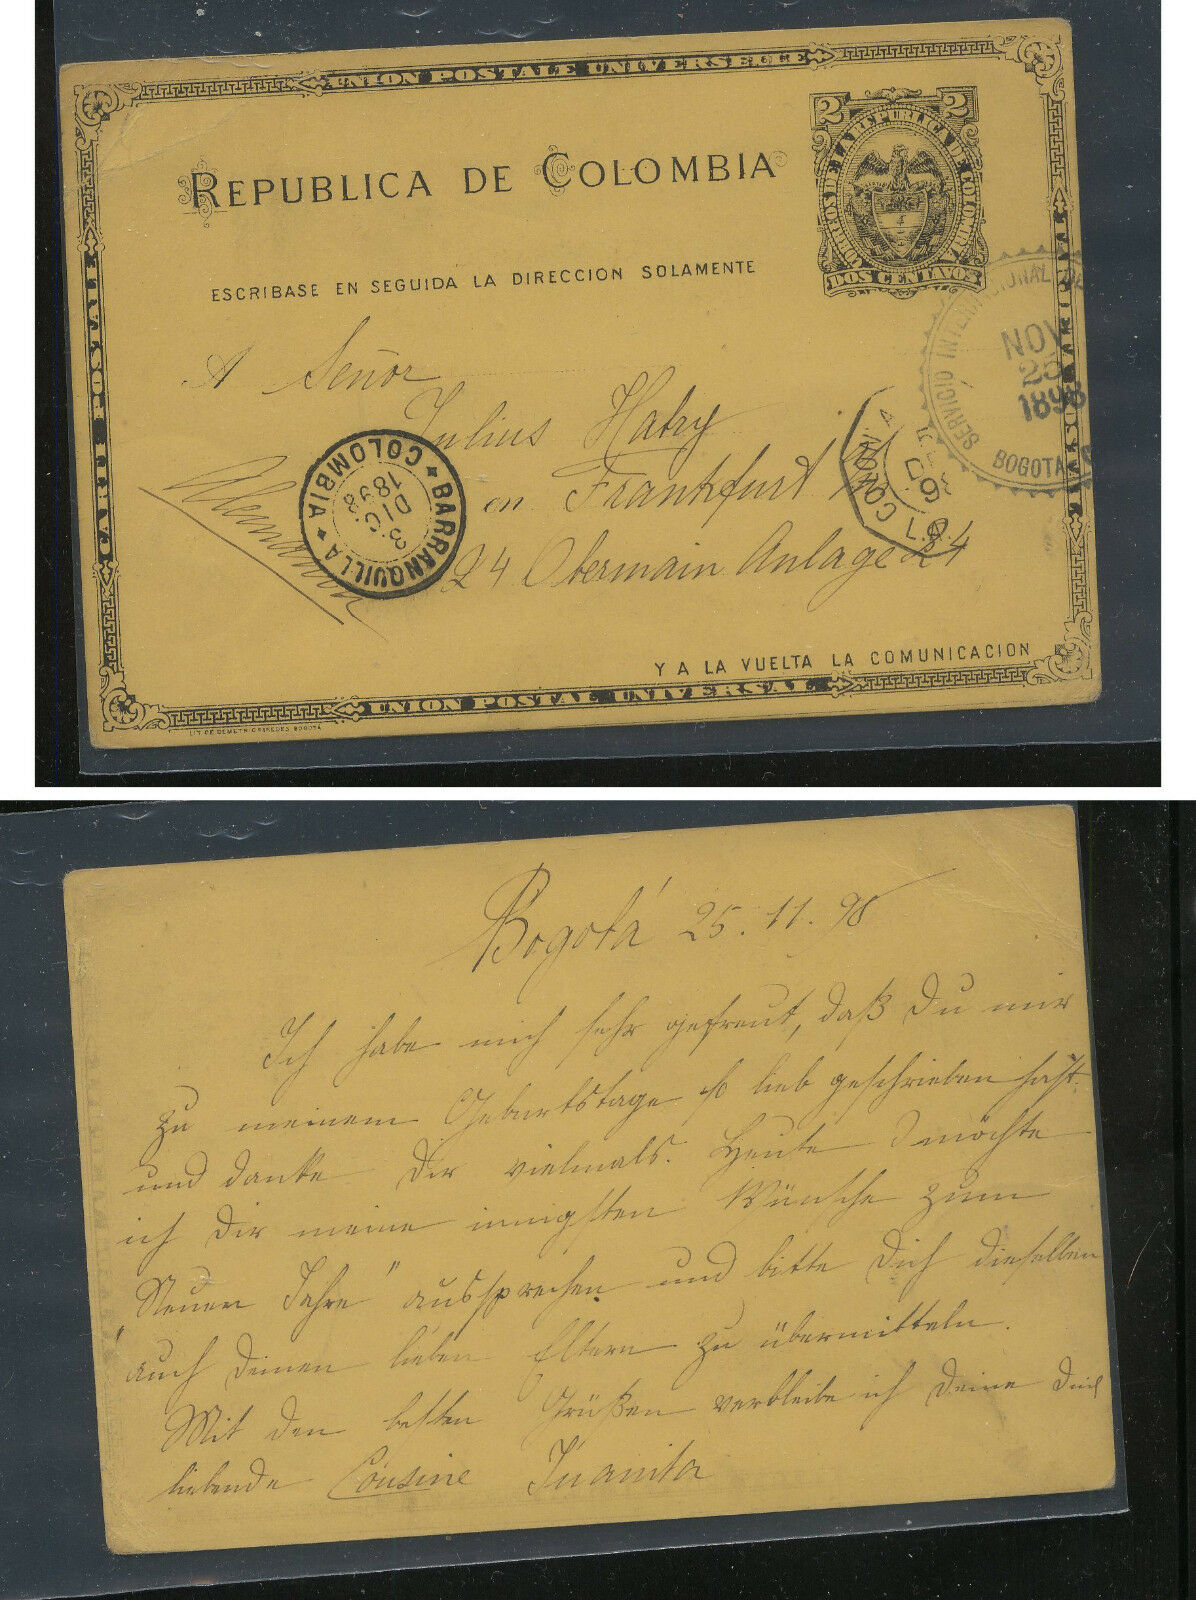 UNION POSTALE UNIVERSELLE
2 2
CORREOS DE LA REPUBLICA DE COLOMBIA
DOS CENTAVOS
REPUBLICA DE COLOMBIA
ESCRIBASE EN SEGUIDA LA DIRECCION SOLAMENTE
CARTE POSTALE
SERVICIO INTERNACIONAL DE
NOV
25
1898
BOGOTA
A Señor
Julius Hatry
en Frankfurt a/M
24 Obermain Anlage 24
Alemania
BARRANQUILLA
COLOMBIA
3
DIC
1898
Y A LA VUELTA LA COMUNICACION
UNION POSTAL UNIVERSAL
LIT. DE DEMETRIO PAREDES BOGOTA
Bogotá 25.11.98
Ich habe mich sehr gefreut, daß Du mir
zu meinem Geburtstage so lieb geschrieben hast
und danke Dir vielmals. Heute möchte
ich Dir meine innigsten Wünsche zum
"Neuen Jahre" aussprechen und bitte Dich dieselben
auch Deinen lieben Eltern zu übermitteln.
Mit den besten Grüßen verbleibe ich Deine Dich
liebende Cousine Juanita